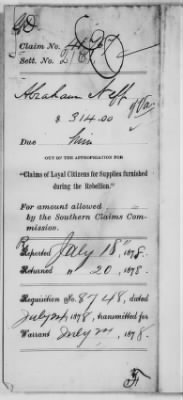 Claim No.
Sett. No.
Abraham Neff
of Va.
$ 314.00
Due him
OUT OF THE APPROPRIATION FOR
"Claims of Loyal Citizens for Supplies furnished
during the Rebellion."
For amount allowed
by the Southern Claims Com-
mission.
Reported July 18", 1878.
Returned " 20, 1878
Requisition No. 8748, dated
July 24 1878, transmitted for
Warrant July 24, 1878.